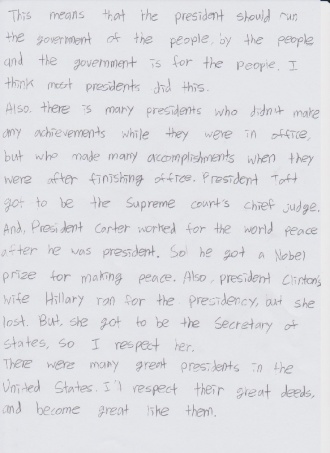 This means that the president should run
the government of the people, by the people
and the government is for the people. I
think most presidents did this.
Also, there is many presidents who didn't make
any achievements while they were in office,
but who made many accomplishments when they
were after finishing office. President Taft
got to be the Supreme court's chief judge.
And, President Carter worked for the world peace
after he was president. So he got a Nobel
prize for making peace. Also, president Clinton's
wife Hillary ran for the presidency, but she
lost. But, she got to be the Secretary of
states, so I respect her.
There were many great presidents in the
United States. I'l respect their great deeds,
and become great like them.